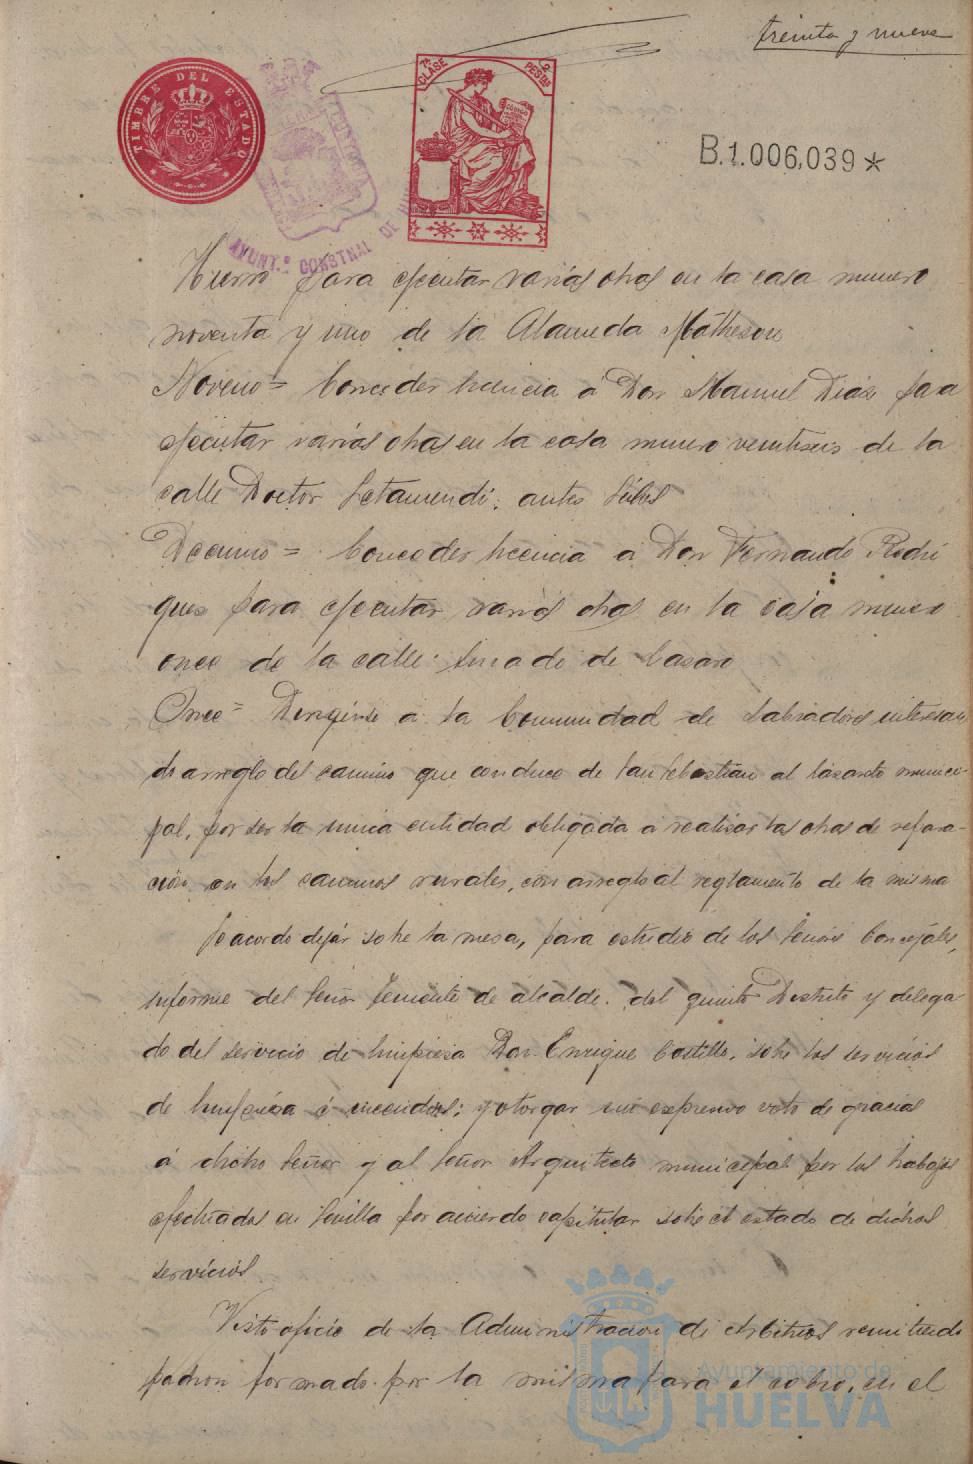 treinta y nueve
TIMBRE DEL ESTADO
7ª CLASE
2 PESETAS
B.1.006,039*
AYUNT.º CONSTNAL DE
Hierro para ejecutar varias obras en la casa numero
noventa y uno de la Alameda Matheson
Noveno = Conceder licencia á Don Manuel Diáz para
ejecutar varias obras en la casa numero ventiseis de la
calle Doctor Letamendi, antes
Décimo = Conceder licencia a Don Fernando Rodri
guez para ejecutar varias obras en la casa numero
once de la calle de
Once = Dirigirse a la Comunidad de Labradores interesan
do arreglo del camino que conduce de San Sebastian al lazareto munici-
pal, por ser la unica entidad obligada a realizar las obras de repara-
ción en los caminos rurales, con arreglo al reglamento de la misma
Se acordo dejar sobre la mesa, para estudio de los Señores Concejales,
informe del Señor Teniente de alcalde del quinto Distrito y delega
do del servicio de limpieza Don Enrique Castillo, sobre los servicios
de limpieza é incendios; y otorgar un expresivo voto de gracias
á dicho Señor y al Señor Arquitecto municipal por los trabajos
efectuados en Sevilla por acuerdo capitular sobre el estado de dichos
servicios
Visto oficio de la Administracion de Arbitrios remitiendo
padron formado por la misma para el cobro, en el
Ayuntamiento de
HUELVA